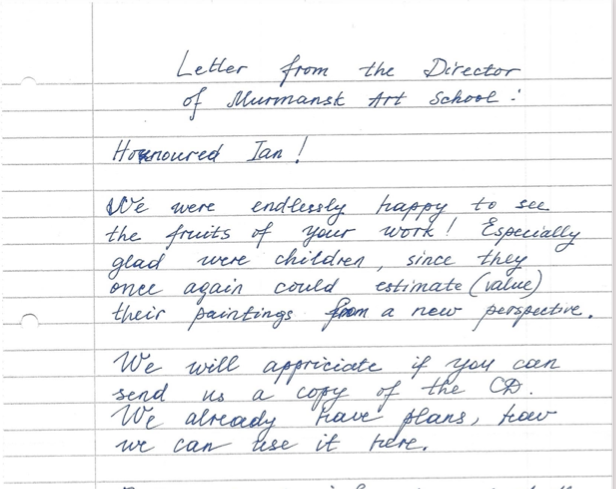 Letter from the Director
of Murmansk Art School:
Honoured Ian!
We were endlessly happy to see
the fruits of your work! Especially
glad were children, since they
once again could estimate (value)
their paintings from a new perspective.
We will appriciate if you can
send us a copy of the CD.
We already have plans, how
we can use it here.